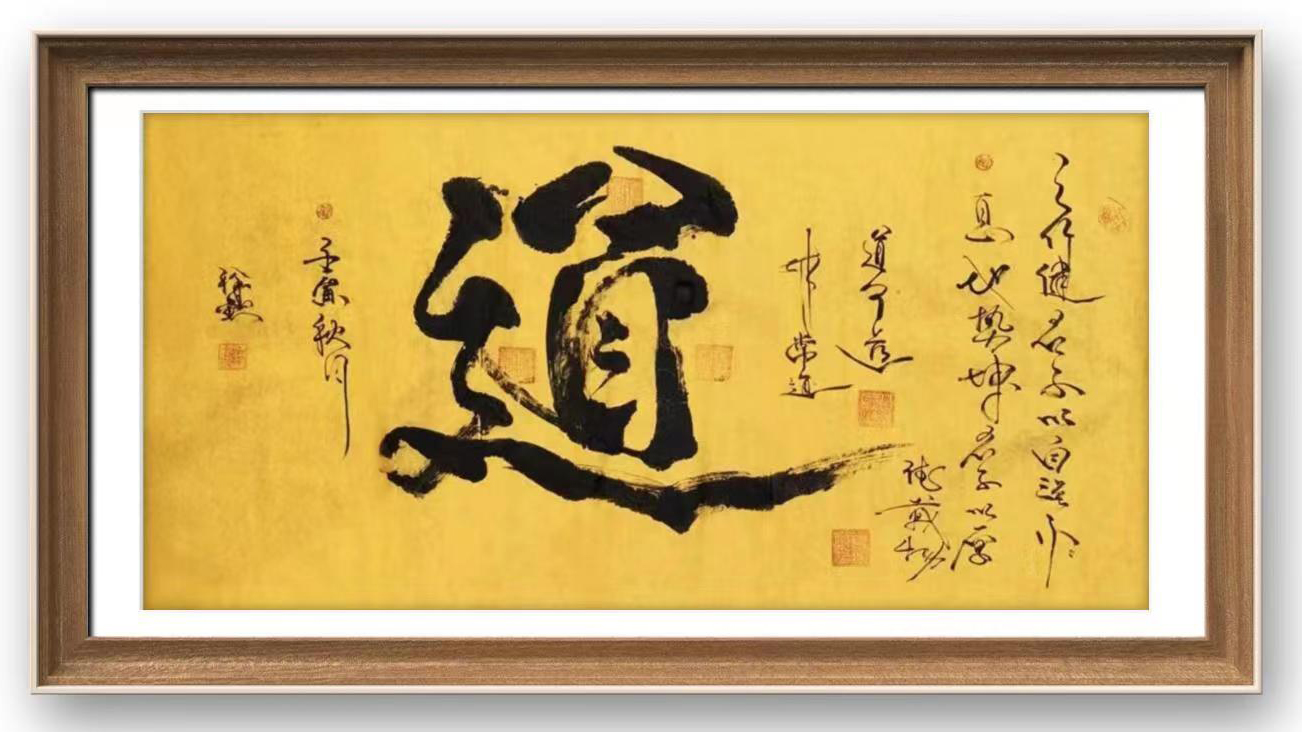 天行健君子以自强不
息地势坤君子以厚
德载物
道可道
非常道
道
壬寅秋月